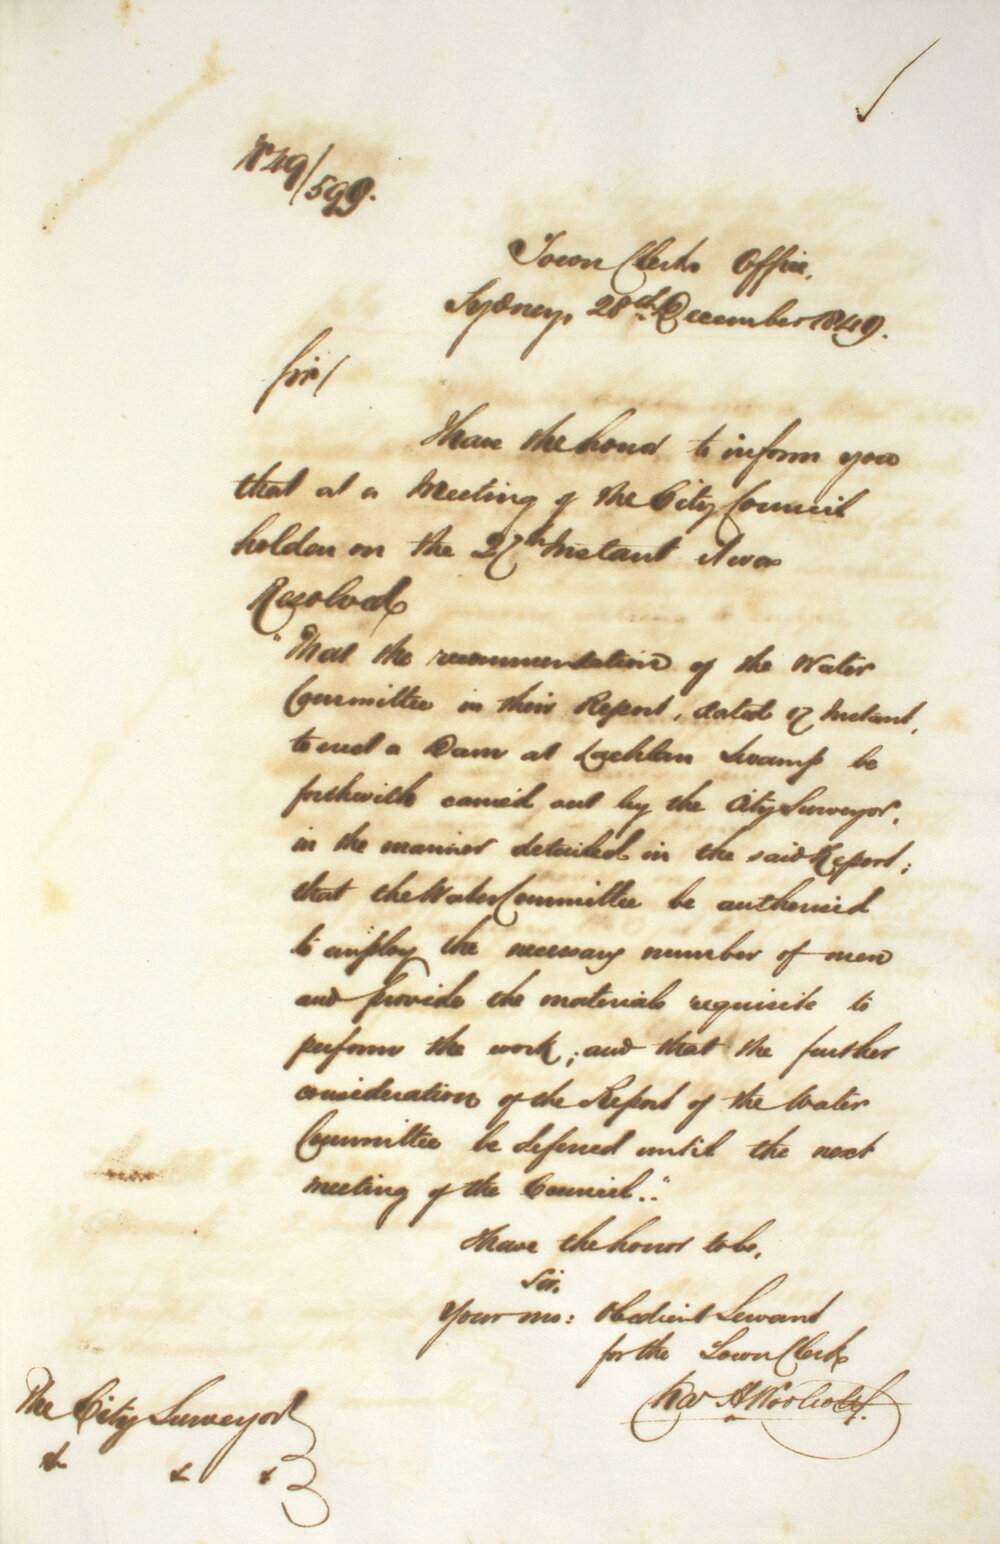 No 49/599.
Town Clerks Office,
Sydney, 28th December 1849.
Sir/
I have the honor to inform you
that at a Meeting of the City Council
holden on the 27th Instant it was
Resolved
"That the recommendation of the Water
Committee in their Report, dated 17 Instant,
to erect a Dam at Lachlan Swamp be
forthwith carried out by the City Surveyor,
in the manner detailed in the said Report;
that the Water Committee be authorised
to employ the necessary number of men
and provide the materials requisite to
perform the work; and that the further
consideration of the Report of the Water
Committee be deferred until the next
meeting of the Council.."
I have the honor to be,
Sir,
Your mo: Obedient Servant
for the Town Clerk
Chas H Woolcott.
The City Surveyor
&c &c &c